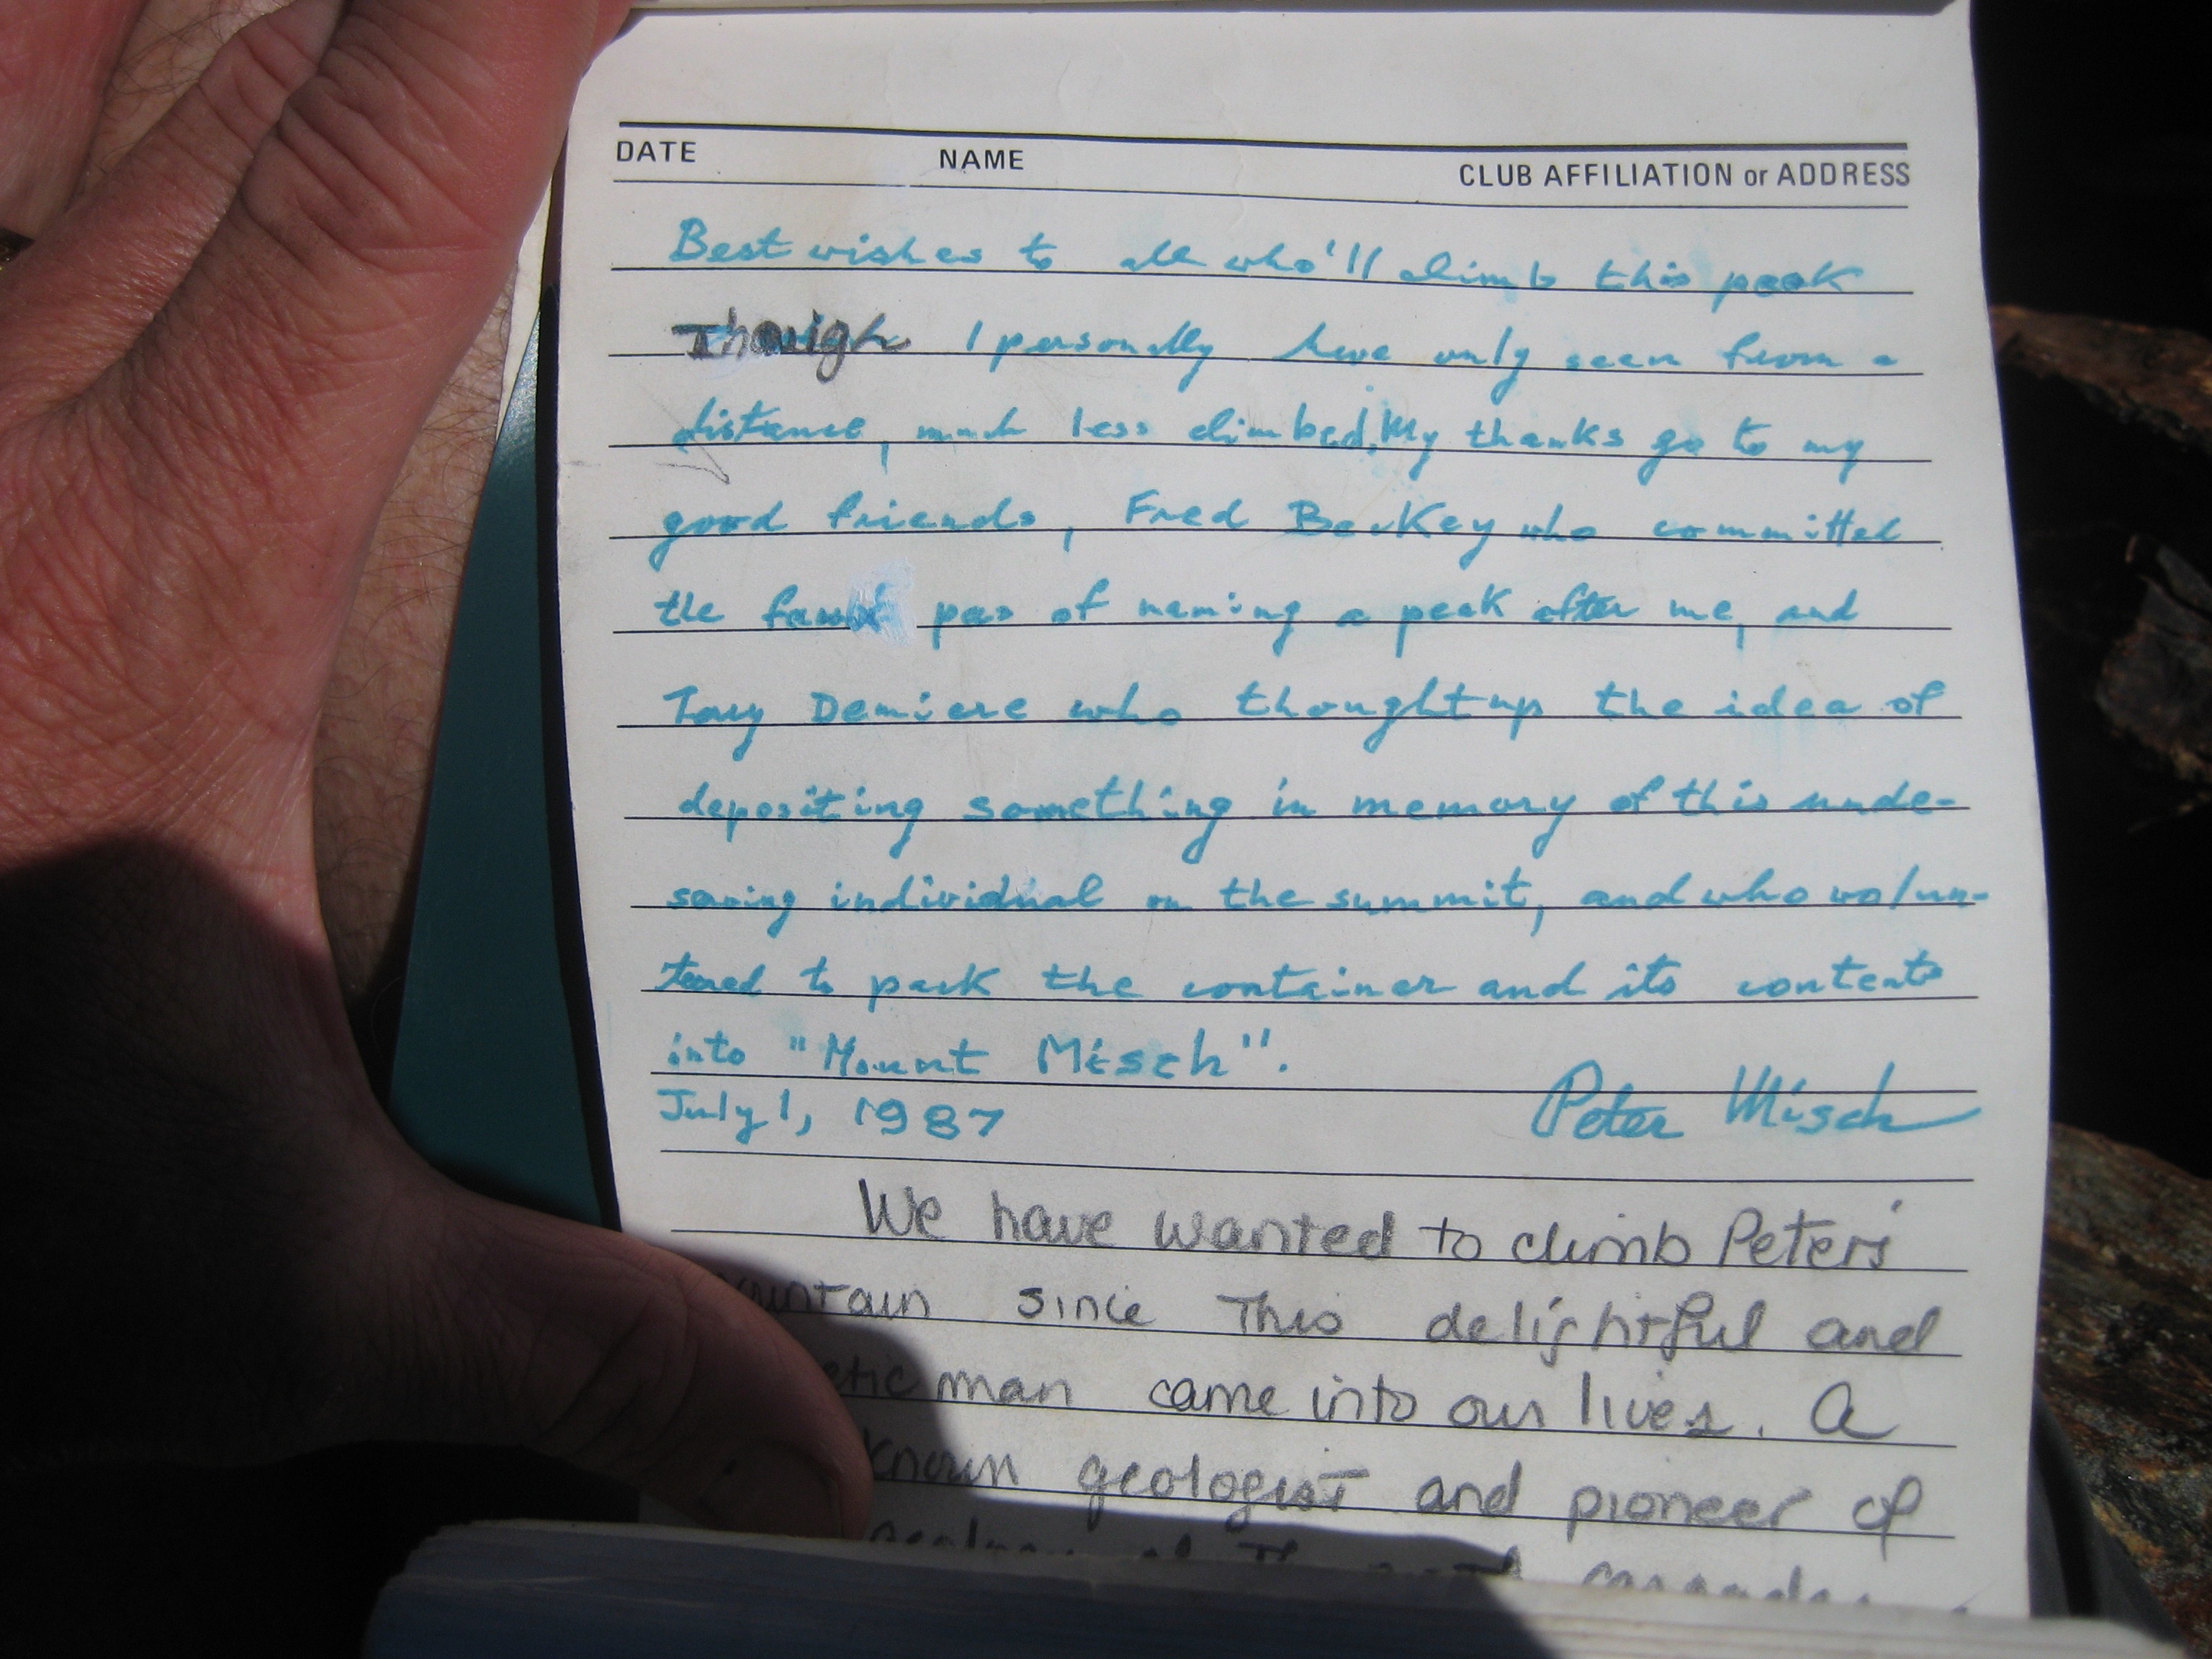 DATE NAME CLUB AFFILIATION or ADDRESS
Best wishes to all who'll climb this peak
Though I personally have only seen from a
distance, much less climbed. My thanks go to my
good friends, Fred Beckey who committed
the faux pas of naming a peak after me, and
Tony Demiere who thought up the idea of
depositing something in memory of this unde-
serving individual on the summit, and who volun-
teered to pack the container and its contents
into "Mount Misch".
July 1, 1987 Peter Misch
We have wanted to climb Peter's
since This delightful and
man came into our lives. A
known geologist and pioneer of